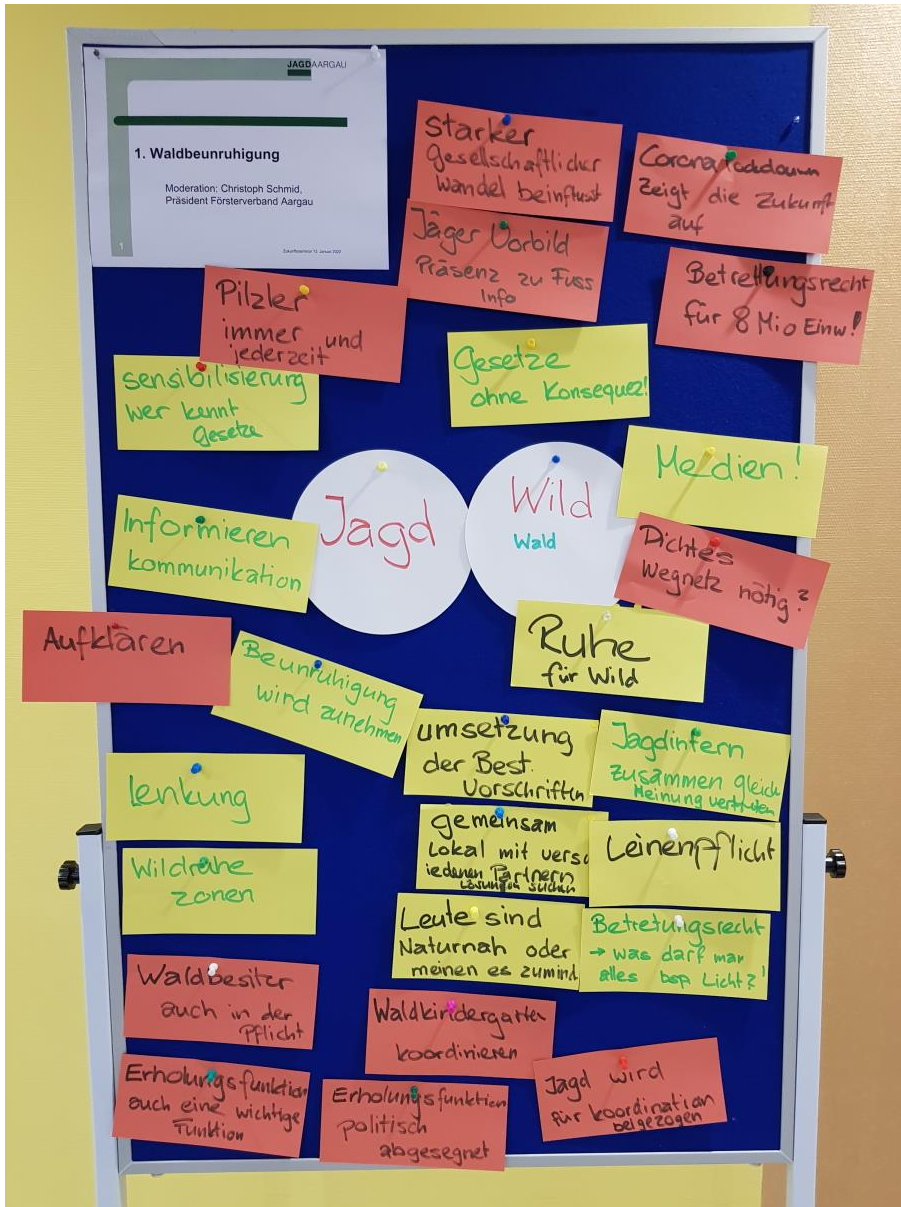 JAGDAARGAU
1. Waldbeunruhigung
Moderation: Christoph Schmid,
Präsident Försterverband Aargau
1
Zukunftsseminar 13. Januar 2022
starker
Gesellschaftlicher
Wandel beinflusst
Corona Lockdown
Zeigt die Zukunft
auf
Jäger Vorbild
Präsenz zu Fuss
Info
Betrettungsrecht
für 8 Mio Einw!
Pilzler
immer und
jederzeit
Gesetze
ohne Konsequez!
sensibilisierung
wer kennt
Gesetze
Medien!
Jagd
Wild
Wald
Informieren
kommunikation
Dichtes
Wegnetz nötig?
Aufklären
Ruhe
für Wild
Beunruhigung
wird zunehmen
umsetzung
der Best.
Vorschriften
Jagdintern
zusammen gleich
Meinung vertreten
Lenkung
gemeinsam
Lokal mit versch
iedenen Partnern
Lösungen suchen
Leinenpflicht
Wildruhe
zonen
Leute sind
Naturnah oder
meinen es zumind
Betretungsrecht
→ was darf man
alles bsp Licht?!
Waldbesitzer
auch in der
Pflicht
Waldkindergarten
koordinieren
Erholungsfunktion
auch eine wichtige
Funktion
Erholungsfunktion
politisch
abgesegnet
Jagd wird
für koordination
beigezogen